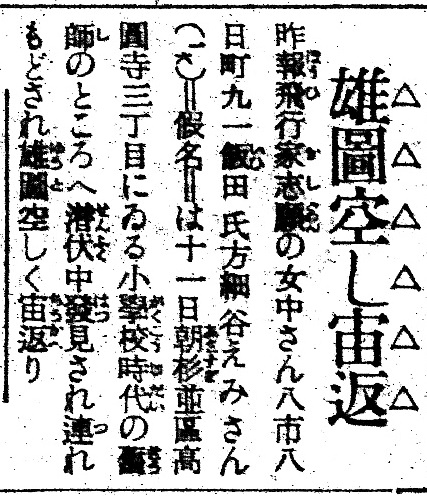 △△△△△△
雄圖空し宙返
昨報飛行家志願の女中さん八市八
日町九一飯田氏方細谷えみさん
＝假名＝は十一日朝杉並區高
圓寺三丁目にゐる小學校時代の舊
師のところへ潜伏中發見され連れ
もどされ雄圖空しく宙返り